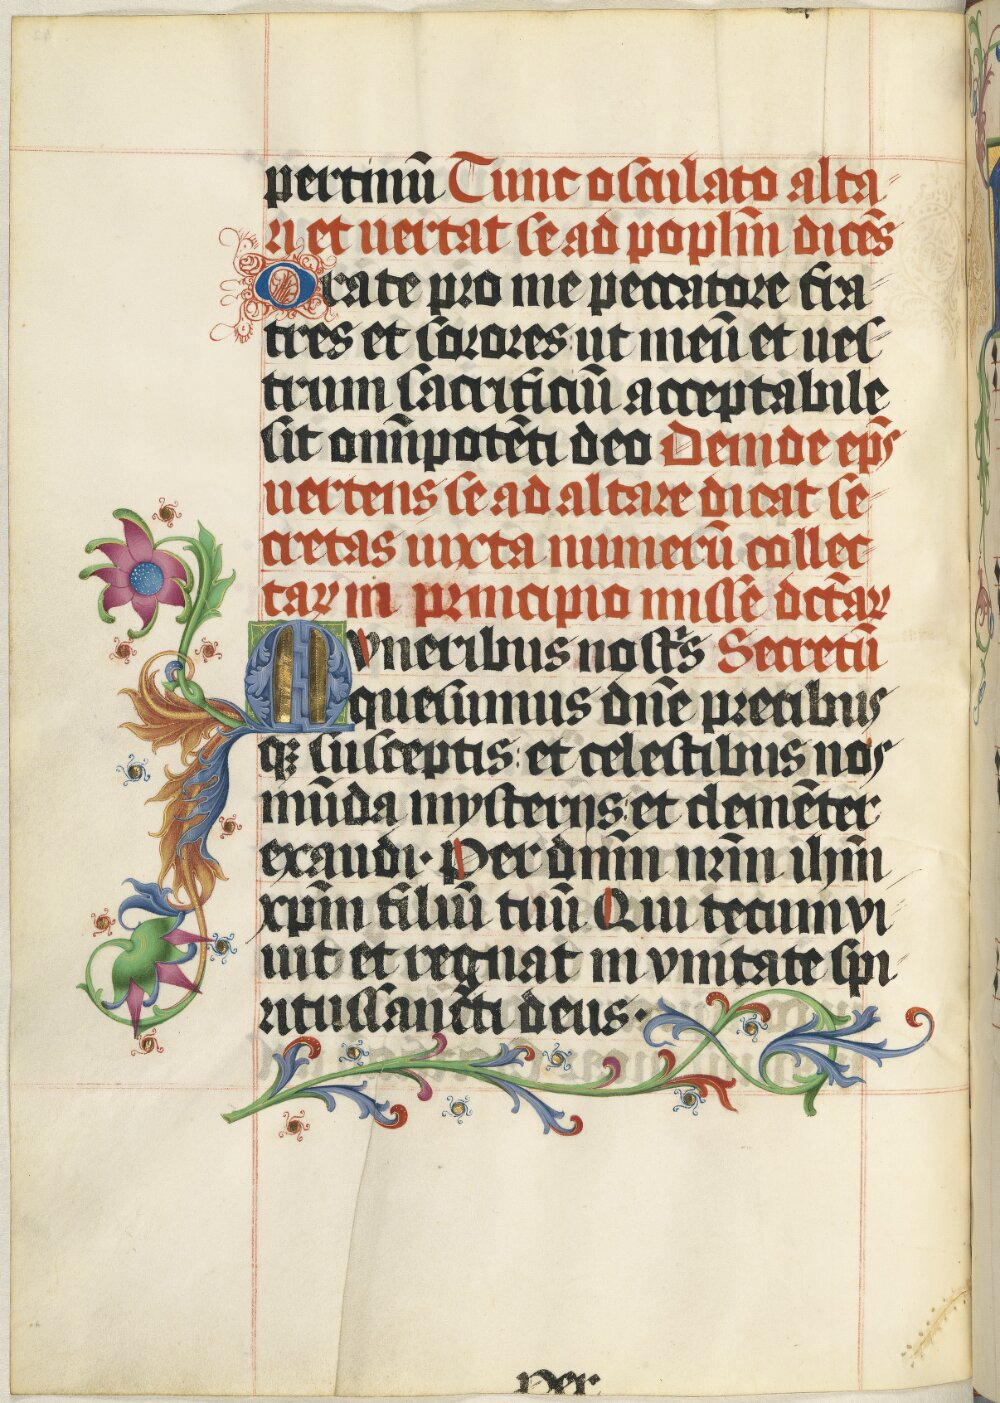 pertinū Tunc osculato alta
ri et uertat se ad poplm̄ dicēs
Orate pro me peccatore fra
tres et sorores ut meū et ues
trum sacrificiū acceptabile
sit omīpotēti deo Deinde ep̄s
uertens se ad altare dicat se
cretas iuxta numerū collec
tarꝝ in principio missē dc̄tarꝝ
Muneribus nost̄s Secretū
quesumus dn̄e precibus
qꝫ susceptis: et celestibus nos
mūda mysterijs: et clemēter
exaudi· Per dnm̄ nrm̄ ihm̄
xpm̄ filiū tuū Qui tecum vi
uit et regnat in vnitate spi
ritussancti deus·
Per